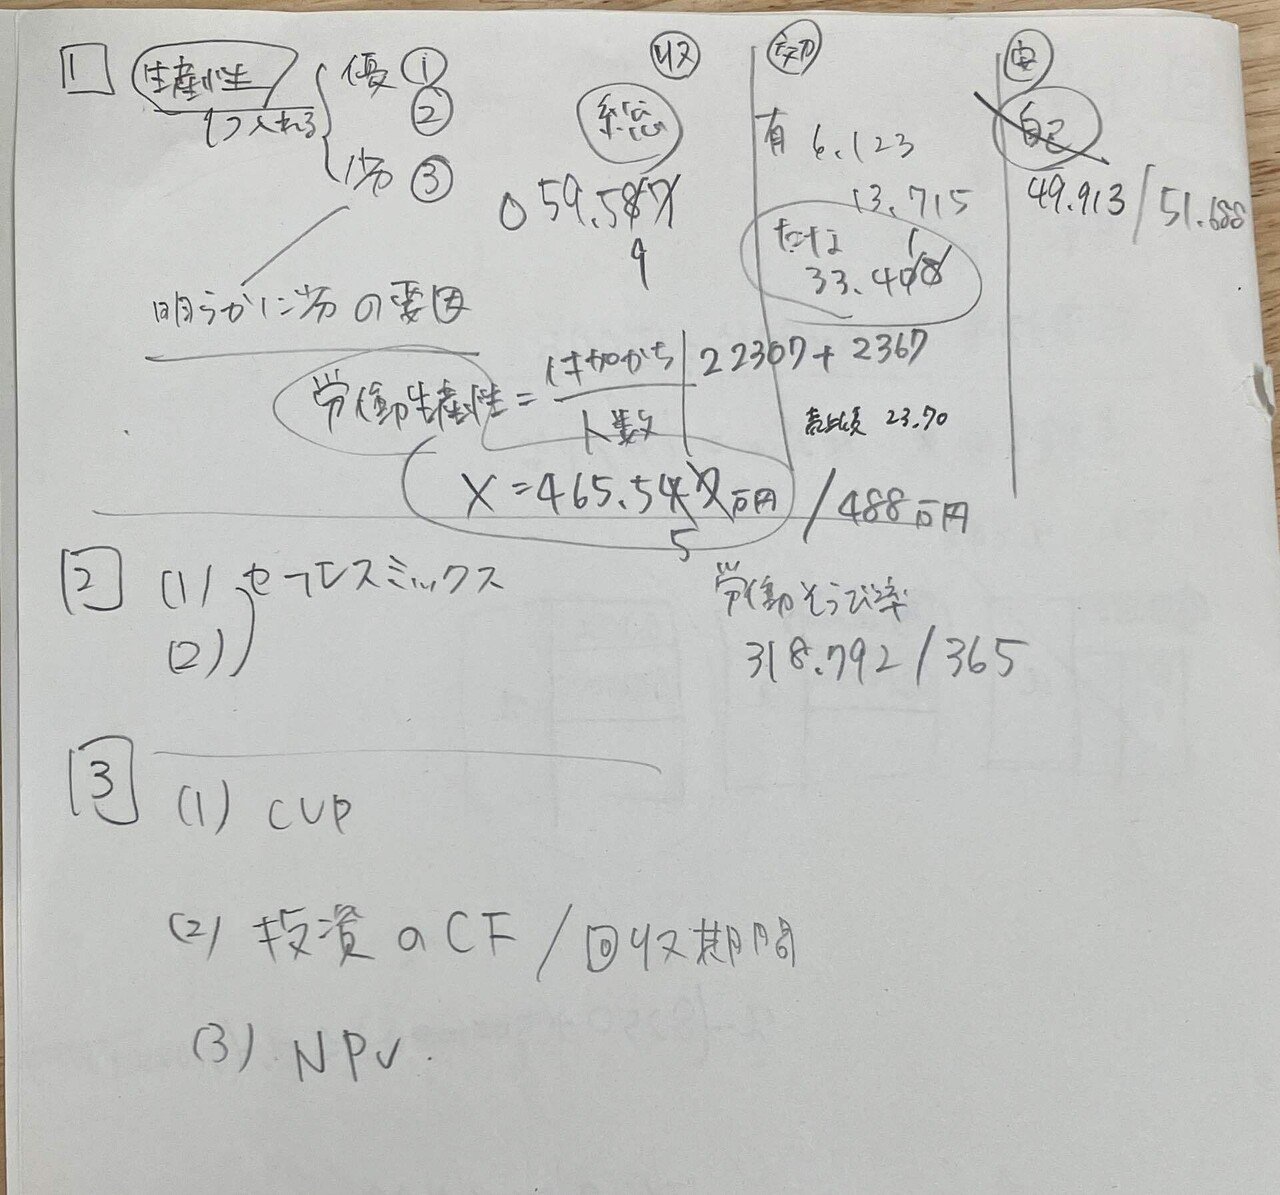 1 生産性 優 ① 収 効 安
②
を入れる 総 自己
劣 ③ 有 6.123
○ 59.587 13.715 49.913/51.688
9 たな 1
33.408
明らかに劣の要因
労働生産性=付加かち/人数 22307+2367
売比較 23.70
X=465.547万円/488万円
5
2 (1) セールスミックス 労働そうび率
(2) 318.792/365
3 (1) CVP
(2) 投資のCF/回収期間
(3) NPV.